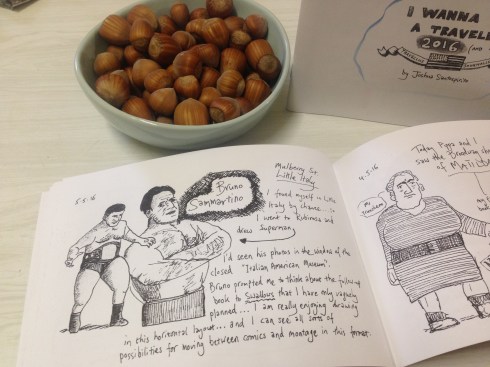 I WANNA
A TRAVELL
2016
by Joshua Santospirito
5.5.16
Bruno
Sammartino
Mulberry St
Little Italy
I found myself in Little
Italy by chance ...
I went to Katinas and
drew Superman
I'd seen his photos in the window of the
closed "Italian American Museum".
Bruno prompted me to think above the follow-up
book to Swallows that I have only vaguely
planned.... I am really enjoying drawing
in this horizontal layout... and I can see all sorts of
possibilities for moving between comics and montage in this format.
4.5.16
Today Pigra and I
saw the Broadway show
of MATILDA
my